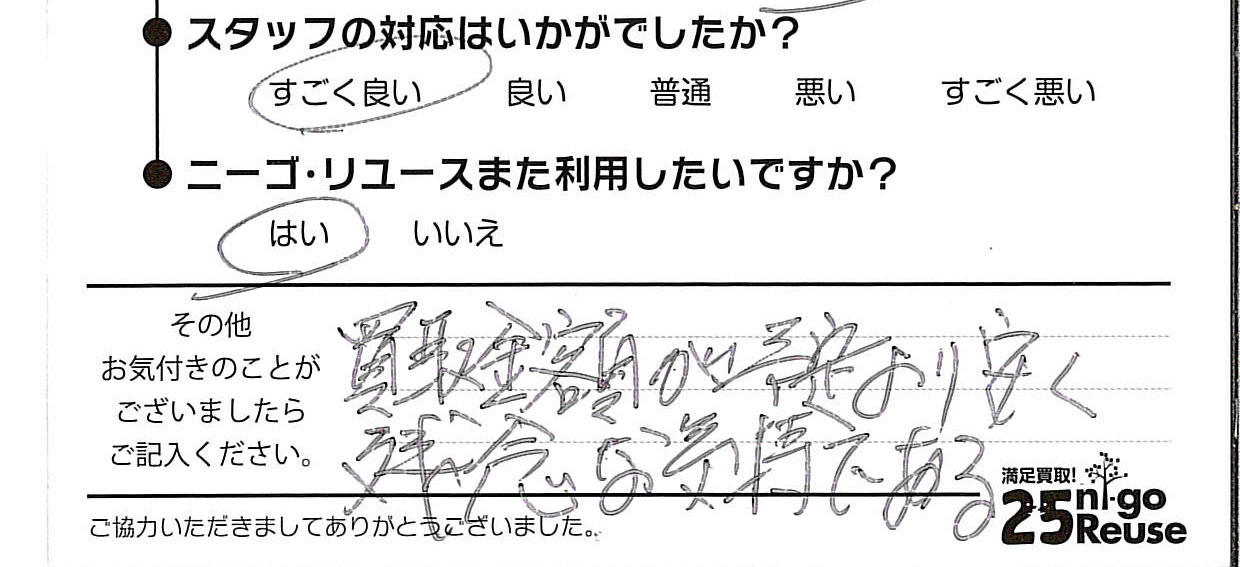 スタッフの対応はいかがでしたか?
すごく良い 良い 普通 悪い すごく悪い
ニーゴ・リユースまた利用したいですか?
はい いいえ
その他
お気付きのことが
ございましたら
ご記入ください。
買取金額が より安く
残念な気持である
満足買取!
25 ni-go
Reuse
ご協力いただきましてありがとうございました。